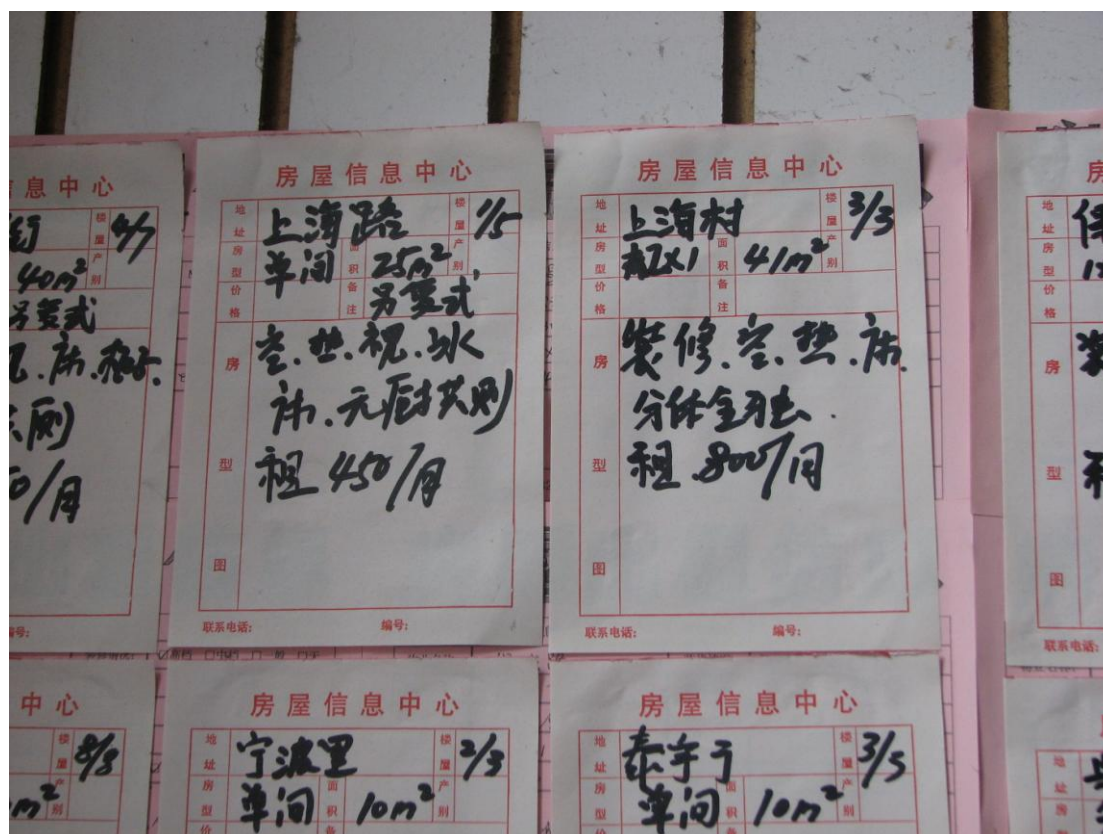 息中心
街 4/7
40m²
产别
另变式
床.
厕
0/月
编号:
房屋信息中心
地址 上海路 楼屋 1/5
房型 单间 面积 25m² 产别
价格 备注 另变式
房型图
空.热.视.冰
床、元厨共厕
租 450/月
联系电话: 编号:
房屋信息中心
地址 上海村 楼屋 3/3
房型 1X1 面积 41m² 产别
价格 备注
房型图
装修.空.热.床.
分体全独.
租 800/月
联系电话: 编号:
房
地址
房型
价格
房型图
联系电话:
中心
楼屋 8/8
m² 产别
房屋信息中心
地址 宁波里 楼屋 2/3
房型 单间 面积 10m² 产别
价 备
房屋信息中心
地址 泰宇 楼屋 3/5
房型 单间 面积 10m² 产别
价 备
地址
房型